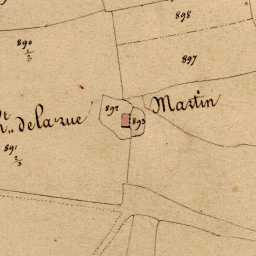 898
890
1/2
897
892
Martin
893
de la rue
891
2/3